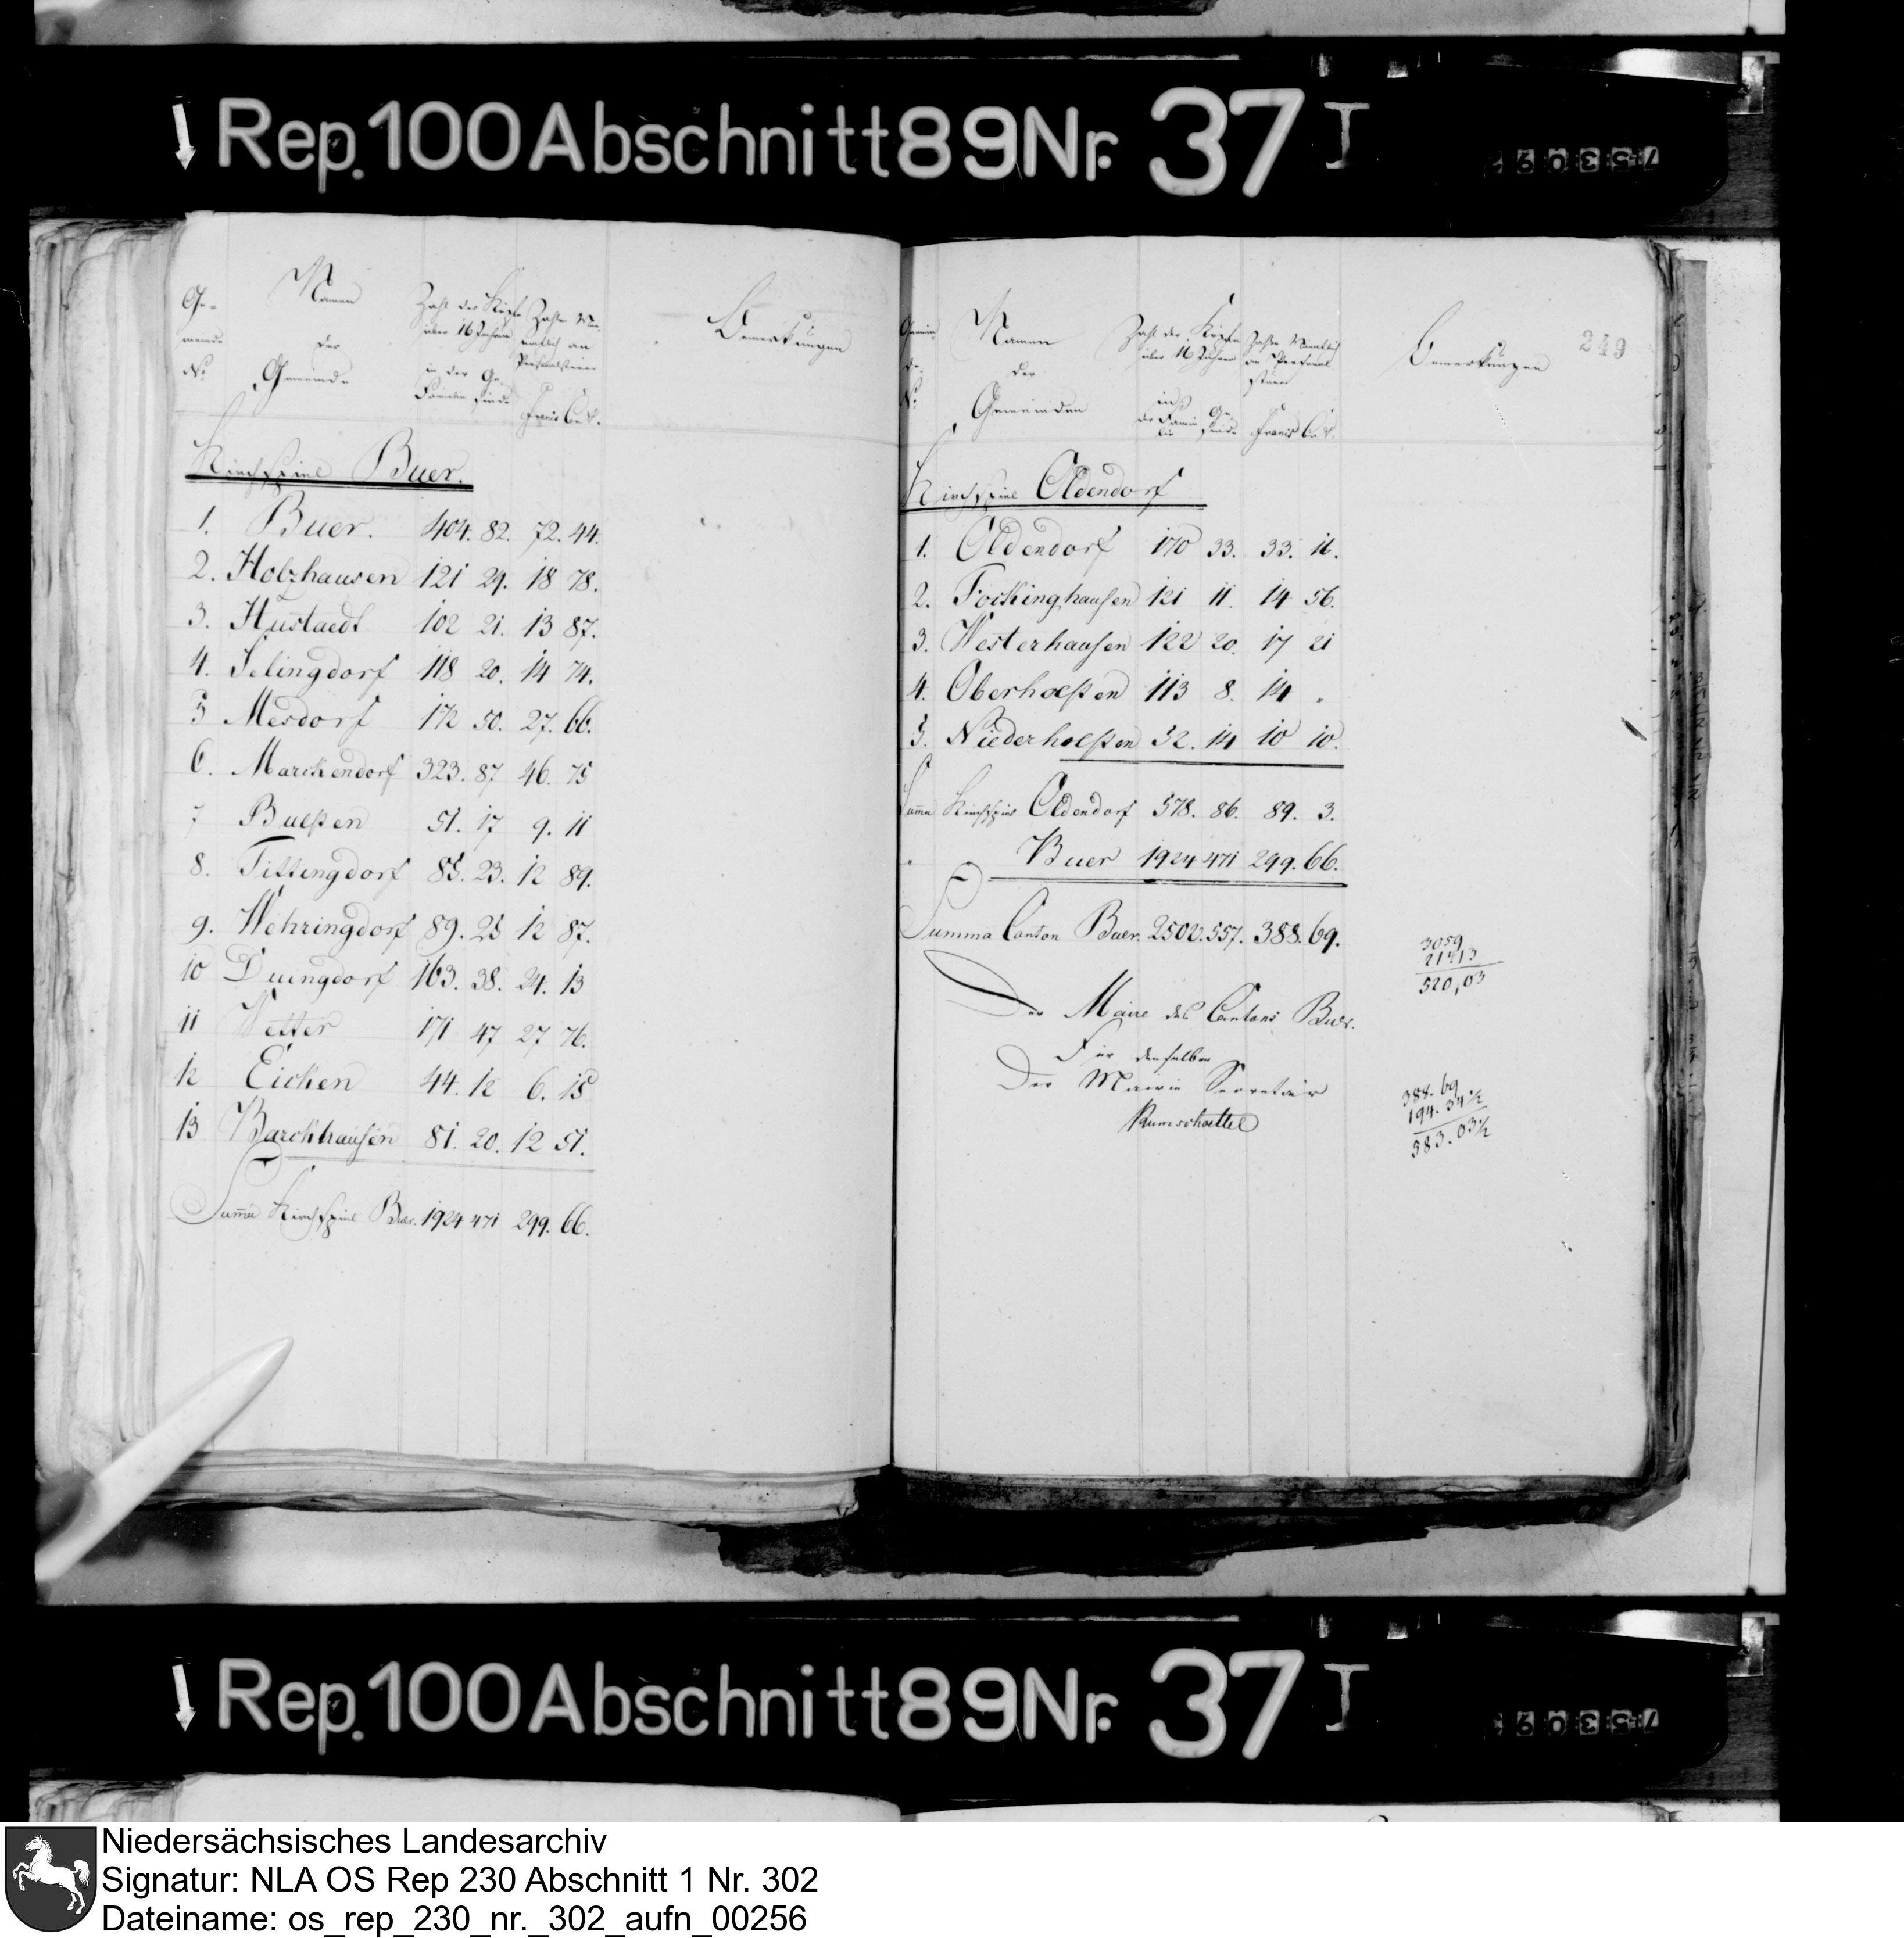 Rep. 100 Abschnitt 89 Nr. 37 I
753092
Ge-
meinde
No
Namen
der
Gemeinde
Zahl der Köpfe
über 16 Jahren
in der
Familie
Ge-
sinde
Zahlen Mo-
natlich an
Personalsteuer
Francs Cent.
Bemerkungen
Kirchspiel Buer.
1. Buer. 404. 82. 72. 44.
2. Holzhausen 121 29. 18 78.
3. Hustaedt 102 21. 13 87.
4. Selingdorf 118 20. 14 74.
5 Mesdorf 172 50. 27. 66.
6. Marckendorf 323. 87 46. 75
7 Bueßen 51. 17 9. 11
8. Tittingdorf 85. 23. 12 89.
9. Wehringdorf 89. 25 12 87.
10 Duingdorf 163. 38. 24. 13
11 Wetter 171 47 27 76.
12 Eicken 44. 12 6. 15
13 Barckhausen 81. 20. 12 51.
Summa Kirchspiel Buer. 1924 471 299. 66.
249
Gemein-
de-
No.
Namen
der
Gemeinden
Zahl der Köpfe
über 16 Jahren
in
der Fami-
lie
Ge-
sinde
Zahlen Monatlich
an Personal
steuer
Francs Cent.
Bemerkungen
Kirchspiel Oldendorf
1. Oldendorf 170 33. 33. 16.
2. Föckinghausen 121 11. 14 56.
3. Westerhausen 122 20. 17 21
4. Oberholßen 113 8. 14 .
5. Niederholßen 52. 14 10 10.
Summa Kirchspiel Oldendorf 578. 86. 89. 3.
Buer 1924 471 299. 66.
Summa Canton Buer. 2502. 557. 388. 69.
3059
21413
520,03
Der Maire des Cantons Buer.
Für denselben
Der Mairie Secretair
Rumschoettel
388. 69
194. 34 1/2
583. 03 1/2
Rep. 100 Abschnitt 89 Nr. 37 I
Niedersächsisches Landesarchiv
Signatur: NLA OS Rep 230 Abschnitt 1 Nr. 302
Dateiname: os_rep_230_nr._302_aufn_00256